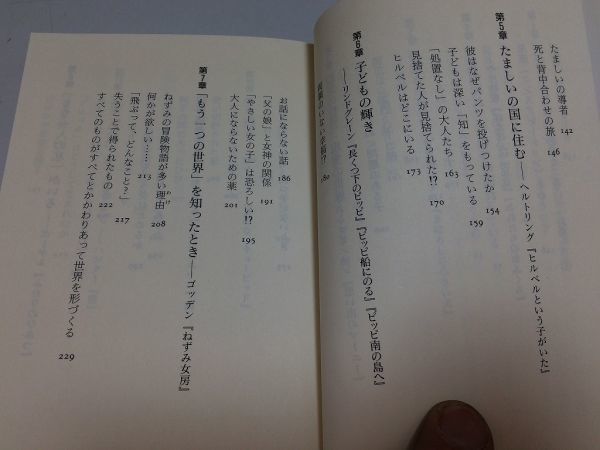 たましいの導者 142
死と背中合わせの旅 146
第5章 たましいの国に住む――ヘルトリング『ヒルベルという子がいた』
彼はなぜパンツを投げつけたか 154
子どもは深い「知」をもっている 159
「処置なし」の大人たち 163
見捨てた人が見捨てられた!? 170
ヒルベルはどこにいる 173
第6章 子どもの輝き
――リンドグレーン『長くつ下のピッピ』『ピッピ船にのる』『ピッピ南の島へ』
180
お話にならない話 186
「父の娘」と女神の関係 191
「やさしい女の子」は恐ろしい!? 195
大人にならないための薬 201
第7章 「もう一つの世界」を知ったとき――ゴッデン『ねずみ女房』
ねずみの冒険物語が多い理由 208
わけ
何かが欲しい…… 213
「飛ぶって、どんなこと?」 217
失うことで得られたもの 222
すべてのものがすべてとかかわりあって世界を形づくる 229